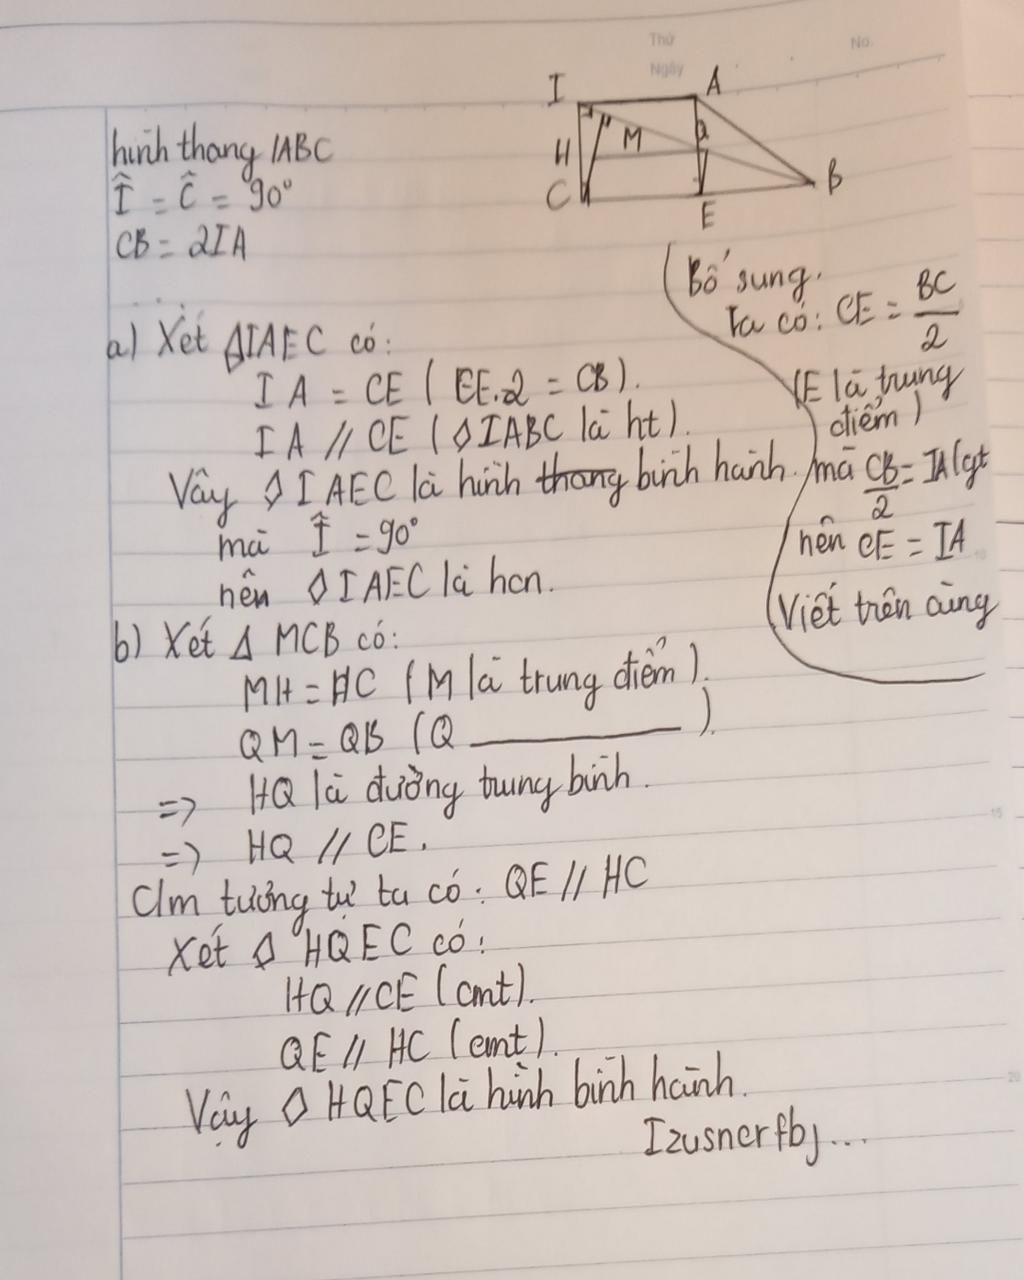 Thứ
No.
Ngày
I A
M Q
H
C E B
hình thang IABC
Î = Ĉ = 90°
CB = 2IA
Bổ sung.
Ta có: CE = BC/2
(E là trung
điểm)
mà CB/2 = IA (gt
nên CE = IA
Viết trên cùng
a) Xét ◊IAEC có:
IA = CE (CE.2 = CB).
IA // CE (◊IABC là ht).
Vậy ◊IAEC là hình thang bình hành.
mà Î = 90°
nên ◊IAEC là hcn.
b) Xét Δ MCB có:
MH = HC (M là trung điểm).
QM = QB (Q ———— ).
=> HQ là đường trung bình.
=> HQ // CE.
Clm tương tự ta có: QE // HC
Xét ◊ HQEC có:
HQ // CE (cmt).
QE // HC (cmt).
Vậy ◊ HQEC là hình bình hành.
Izusnerfbj...
15
20